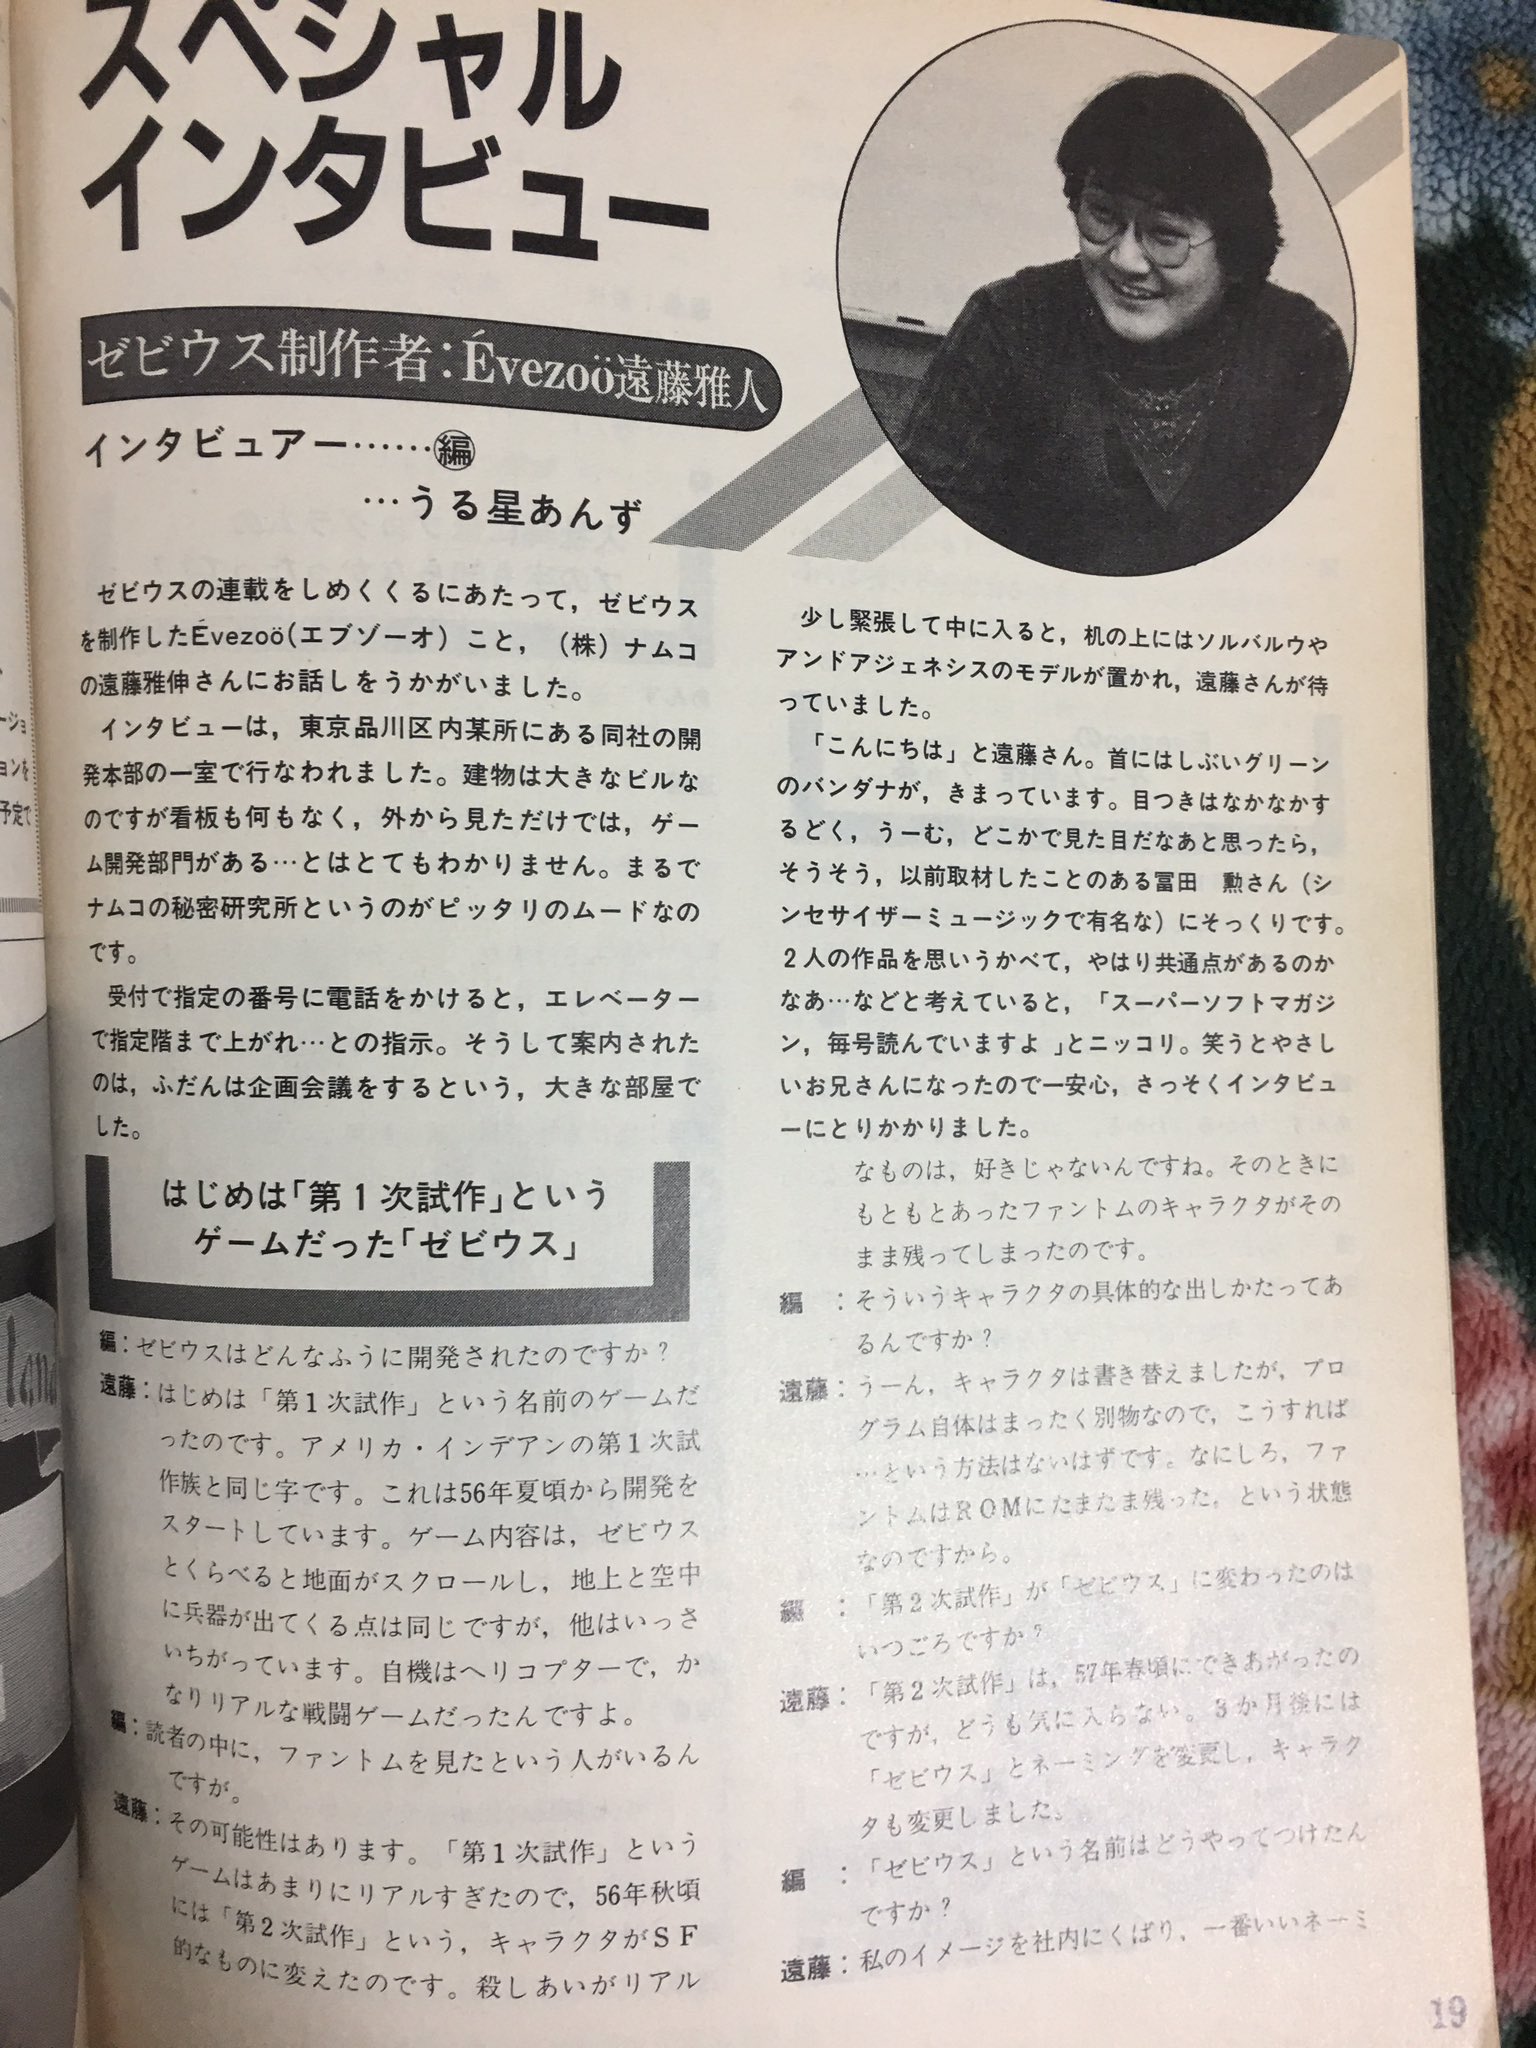 スペシャル
インタビュー
ゼビウス制作者：Évezoö遠藤雅人
インタビュアー……編
…うる星あんず
ゼビウスの連載をしめくくるにあたって，ゼビウス
を制作したÉvezoö（エブゾーオ）こと，（株）ナムコ
の遠藤雅伸さんにお話しをうかがいました。
インタビューは，東京品川区内某所にある同社の開
発本部の一室で行なわれました。建物は大きなビルな
のですが看板も何もなく，外から見ただけでは，ゲー
ム開発部門がある…とはとてもわかりません。まるで
ナムコの秘密研究所というのがピッタリのムードなの
です。
受付で指定の番号に電話をかけると，エレベーター
で指定階まで上がれ…との指示。そうして案内された
のは，ふだんは企画会議をするという，大きな部屋で
した。
はじめは「第１次試作」という
ゲームだった「ゼビウス」
編：ゼビウスはどんなふうに開発されたのですか？
遠藤：はじめは「第１次試作」という名前のゲームだ
ったのです。アメリカ・インデアンの第１次試
作族と同じ字です。これは56年夏頃から開発を
スタートしています。ゲーム内容は，ゼビウス
とくらべると地面がスクロールし，地上と空中
に兵器が出てくる点は同じですが，他はいっさ
いちがっています。自機はヘリコプターで，か
なりリアルな戦闘ゲームだったんですよ。
編：読者の中に，ファントムを見たという人がいるん
ですが。
遠藤：その可能性はあります。「第１次試作」という
ゲームはあまりにリアルすぎたので，56年秋頃
には「第２次試作」という，キャラクタがＳＦ
的なものに変えたのです。殺しあいがリアル
少し緊張して中に入ると，机の上にはソルバルウや
アンドアジェネシスのモデルが置かれ，遠藤さんが待
っていました。
「こんにちは」と遠藤さん。首にはしぶいグリーン
のバンダナが，きまっています。目つきはなかなかす
るどく，うーむ，どこかで見た目だなあと思ったら，
そうそう，以前取材したことのある冨田　勲さん（シ
ンセサイザーミュージックで有名な）にそっくりです。
２人の作品を思いうかべて，やはり共通点があるのか
なあ…などと考えていると，「スーパーソフトマガジ
ン，毎号読んでいますよ」とニッコリ。笑うとやさし
いお兄さんになったので一安心，さっそくインタビュ
ーにとりかかりました。
なものは，好きじゃないんですね。そのときに
もともとあったファントムのキャラクタがその
まま残ってしまったのです。
編　：そういうキャラクタの具体的な出しかたってあ
るんですか？
遠藤：うーん，キャラクタは書き替えましたが，プロ
グラム自体はまったく別物なので，こうすれば
…という方法はないはずです。なにしろ，ファ
ントムはＲＯＭにたまたま残った，という状態
なのですから。
編　：「第２次試作」が「ゼビウス」に変わったのは
いつごろですか？
遠藤：「第２次試作」は，57年春頃にできあがったの
ですが，どうも気に入らない。３か月後には
「ゼビウス」とネーミングを変更し，キャラク
タも変更しました。
編　：「ゼビウス」という名前はどうやってつけたん
ですか？
遠藤：私のイメージを社内にくばり，一番いいネーミ
19
ージョ
ョンを
予定で
land